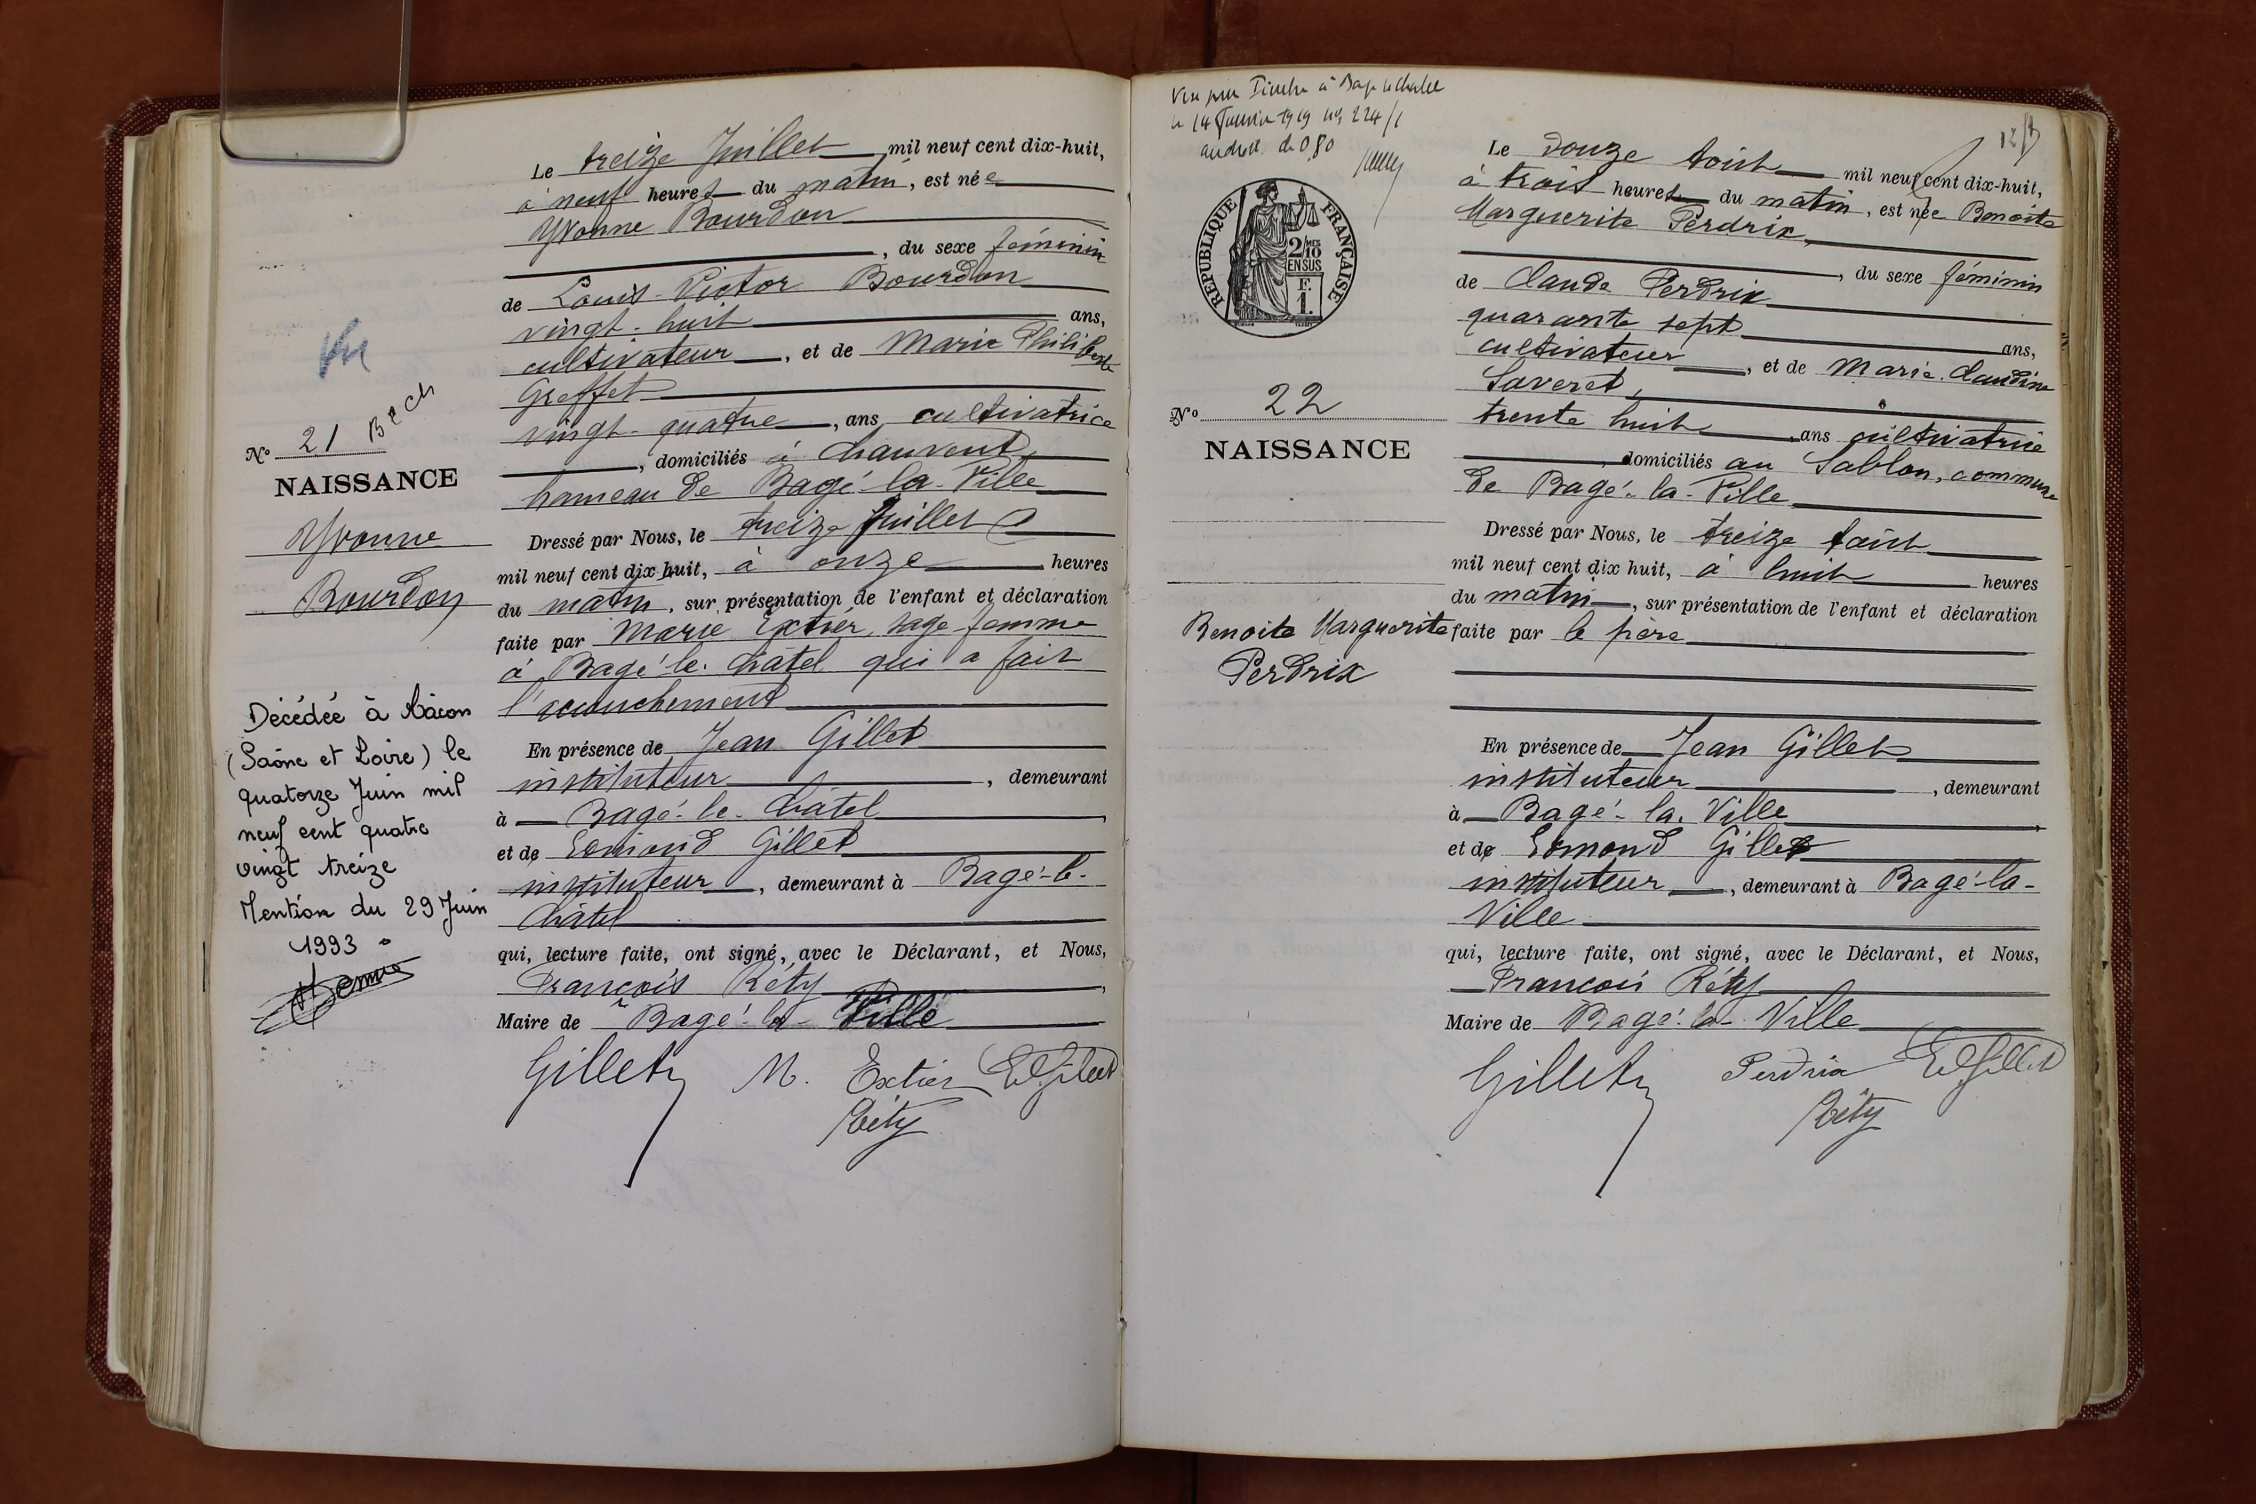 Vu
N° 21 Bach
NAISSANCE
Yvonne
Bourdon
Décédée à Mâcon
(Saône et Loire) le
quatorze Juin mil
neuf cent quatre
vingt treize
Mention du 29 Juin
1993.
Le treize Juillet mil neuf cent dix-huit,
à neuf heures du matin, est née
Yvonne Bourdon
, du sexe féminin
de Louis Victor Bourdon
vingt-huit ans,
cultivateur, et de Marie Philiberte
Greffet
vingt-quatre, ans cultivatrice
, domiciliés à Chauvent,
hameau de Bagé-la-Ville
Dressé par Nous, le treize Juillet
mil neuf cent dix huit, à onze heures
du matin, sur présentation de l'enfant et déclaration
faite par Marie Extier, sage femme
à Bagé-le-Châtel qui a fait
l'accouchement
En présence de Jean Gillet
instituteur, demeurant
à Bagé-le-Châtel,
et de Edmond Gillet
instituteur, demeurant à Bagé-le-
Châtel
qui, lecture faite, ont signé, avec le Déclarant, et Nous,
François Réty,
Maire de Bagé-la-Ville
Gillet M. Extier E Gillet
Réty
Vu pour Timbre à Bagé le Chatel
le 14 Janvier 1919 n° 224/1
au droit de 0,80
RÉPUBLIQUE FRANÇAISE
2/10 EN SUS
F. 1.
N° 22
NAISSANCE
Benoite Marguerite
Perdrix
Le douze Août mil neuf cent dix-huit,
à trois heures du matin, est née Benoite
Marguerite Perdrix,
, du sexe féminin
de Claude Perdrix
quarante sept ans,
cultivateur, et de Marie Claudine
Saveret,
trente huit, ans cultivatrice
, domiciliés au Sablon, commune
de Bagé-la-Ville
Dressé par Nous, le treize Août
mil neuf cent dix huit, à huit heures
du matin, sur présentation de l'enfant et déclaration
faite par le père
En présence de Jean Gillet
instituteur, demeurant
à Bagé-la-Ville,
et de Edmond Gillet
instituteur, demeurant à Bagé-la-
Ville
qui, lecture faite, ont signé, avec le Déclarant, et Nous,
François Réty
Maire de Bagé-la-Ville
Gillet Perdrix E Gillet
Réty